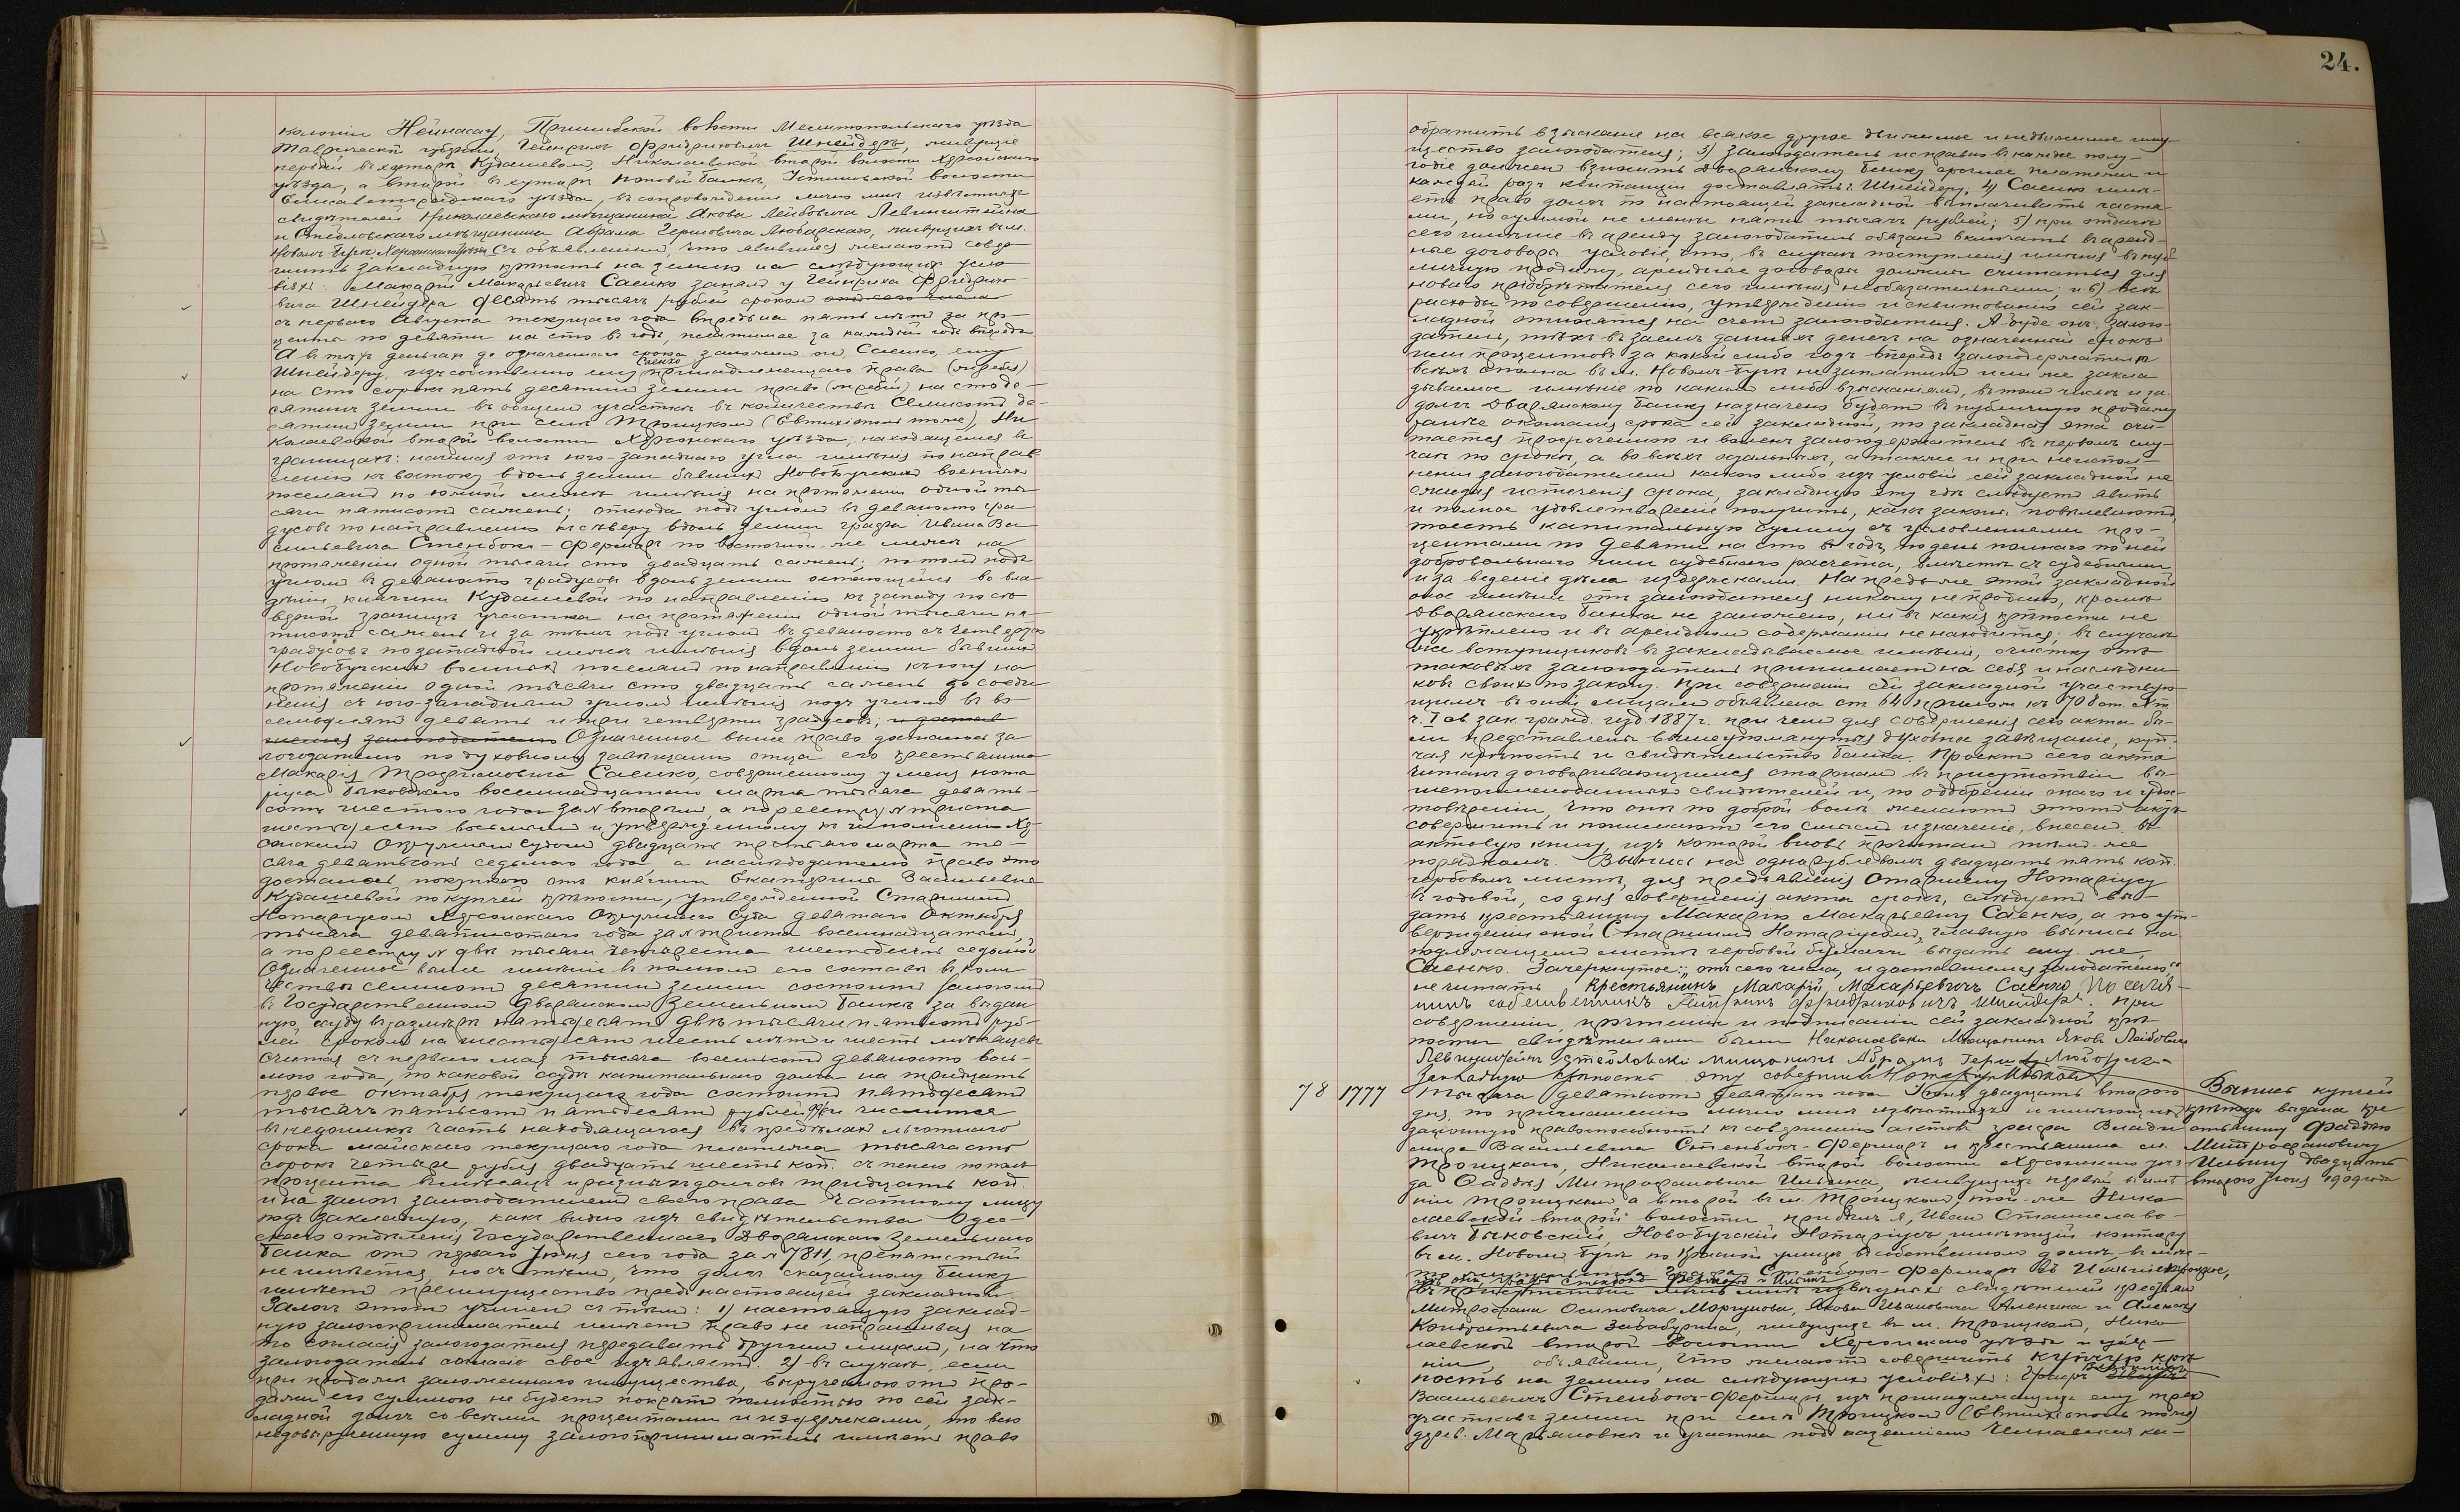 колонии Нейнасау, Пришибской волости Мелитопольскаго уѣзда
Таврической губернии, Гейнрихъ Фридриховичъ Шнейдеръ, живущие
первый въ хуторѣ Кудашевомъ, Николаевской второй волости Херсонскаго
уѣзда, а второй въ хуторѣ Поповой Балкѣ, Устиновской волости
Елисаветградскаго уѣзда, въ сопровождении лично мнѣ извѣстныхъ
свидѣтелей Николаевскаго мѣщанина Якова Лейбовича Левинштейна
и мѣщанина Абрама Гершовича Любарскаго, живущихъ въ м.
Новомъ Бугѣ, Херсонскаго уѣзда съ объявлениемъ, что явившиеся желаютъ совер-
шить закладную крѣпость на землю на слѣдующихъ усло-
вияхъ: Макарий Макарьевичъ Саенко занялъ у Гейнриха Фридрихо-
вича Шнейдера десять тысячъ рублей срокомъ отъ сего числа
съ перваго Августа текущаго года впредь на пять лѣтъ за про-
центы по девяти на сто въ годъ, платимые за каждый годъ впередъ
А въ тѣхъ деньгахъ до означеннаго срока заложилъ онъ, Саенко, ему
Шнейдеру, изъ собственно ему Саенко принадлежащаго права (жребия)
на сто сорокъ пять десятинъ земли право (жребий) на сто де-
сятинъ земли въ общемъ участкѣ въ количествѣ семисотъ де-
сятинъ земли при селѣ Троицкомъ (Евтихиополь тоже), Ни-
колаевской второй волости Херсонскаго уѣзда, находящемся въ
границахъ: начиная отъ юго-западнаго угла имѣния по направ-
лению къ востоку вдоль земли бывшихъ Новобугскихъ военныхъ
поселянъ по южной межѣ имѣния на протяжении одной ты-
сячи пятисотъ сажень; отсюда подъ угломъ въ девяносто гра-
дусовъ по направлению къ сѣверу вдоль земли графа Ивана Ва-
сильевича Стенбокъ-Ферморъ по восточной же межѣ на
протяжении одной тысячи сто двадцать сажень; потомъ подъ
угломъ въ девяносто градусовъ вдоль земли остающейся во вла-
дѣнии княгини Кудашевой по направлению къ западу по сѣ-
верной границѣ участка на протяжении одной тысячи пя-
тисотъ сажень и за тѣмъ подъ угломъ въ девяносто съ четвертью
градусовъ по западной межѣ имѣния вдоль земли бывшихъ
Новобугскихъ военныхъ поселянъ по направлению къ югу на
протяжении одной тысячи сто двадцать сажень до соеди-
нения съ юго-западнымъ угломъ имѣния подъ угломъ въ во-
семьдесятъ девять и три четверти градусовъ, и достав-
шееся залогодателю Означенное выше право досталось за-
логодателю по духовному завѣщанию отца его крестьянина
Макария Трофимовича Саенко, совершенному у меня нота-
риуса Быковскаго восемнадцатаго марта тысяча девять-
сотъ шестого года за № вторымъ, а по реестру № триста
шестьдесятъ восьмымъ и утвержденному къ исполнению Хер-
сонскимъ Окружнымъ Судомъ двадцать третьяго марта ты-
сяча девятьсотъ седьмого года а наслѣдодателю право это
досталось покупкою отъ княгини Екатерины Васильевны
Кудашевой по купчей крѣпости, утвержденной Старшимъ
Нотариусомъ Херсонскаго Окружнаго Суда девятаго Октября
тысяча девятисотаго года за № триста восемнадцатымъ,
а по реестру № двѣ тысячи четыреста шестьдесятъ седьмой
Означенное выше имѣние въ полномъ его составѣ въ коли-
чествѣ семисотъ десятинъ земли состоитъ залогомъ
въ Государственномъ Дворянскомъ Земельномъ Банкѣ за выдан-
ную ссуду въ размѣрѣ пятьдесятъ двѣ тысячи пятьсотъ руб-
лей срокомъ на шестьдесятъ шесть лѣтъ и шесть мѣсяцевъ
считая съ перваго мая тысяча восемьсотъ девяносто вось-
мого года, по каковой ссудѣ капитальнаго долга на тридцать
первое октября текущаго года состоитъ пятьдесятъ
тысячъ пятьсотъ пятьдесятъ рублей и числится
въ недоимкѣ часть находящагося въ предѣлахъ льготнаго
срока майскаго текущаго года платежа тысяча сто
сорокъ четыре рубля двадцать шесть коп. съ пенею по полъ
процента въ мѣсяцъ и разныхъ долговъ тридцать коп.
и на залогъ залогодателемъ своего права частному лицу
подъ закладную, какъ видно изъ свидѣтельства Одес-
скаго отдѣления Государственнаго Дворянскаго Земельнаго
Банка отъ перваго Июня сего года за № 7811, препятствий
не имѣется, но съ тѣмъ, что долгъ сказанному банку
имѣетъ преимущество предъ настоящей закладной.
Залогъ этотъ учиненъ съ тѣмъ: 1) настоящую заклад-
ную залогоприниматель имѣетъ право не испрашивая на
то согласия залогодателя передавать другимъ лицамъ, на что
залогодатель согласие свое изъявляетъ. 2) въ случаѣ, если
при продажѣ заложеннаго имущества, вырученною отъ про-
дажи его суммою не будетъ покрытъ полностью по сей зак-
ладной долгъ со всѣми процентами и издержками, то всю
недовырученную сумму залогоприниматель имѣетъ право
24.
обратить взыскание на всякое другое движимое и недвижимое иму-
щество залогодателя; 3) залогодатель исправно въ каждое полу-
годие долженъ вносить Дворянскому Банку срочные платежи и
каждый разъ квитанции доставлять Шнейдеру, 4) Саенко имѣ-
етъ право долгъ по настоящей закладной выплачивать частя-
ми, но суммой не менѣе пяти тысячъ рублей; 5) при отдачѣ
сего имѣния въ аренду залогодатель обязанъ включать въ аренд-
ные договоры условие, что, въ случаѣ поступления имѣния въ пуб-
личную продажу, арендные договоры должны считаться для
новаго приобрѣтателя сего имѣния необязательными; и 6) всѣ
расходы по совершению, утверждению и сквитованию сей зак-
ладной относятся на счетъ залогодателя. А буде онъ, залого-
датель, тѣхъ въ заемъ данныхъ денегъ на означенный срокъ
или процентовъ за какой либо годъ впередъ залогодержателю
всѣхъ сполна въ м. Новомъ Бугѣ не заплатитъ или же закла-
дываемое имѣние по какимъ либо взысканиямъ, въ томъ числѣ и за
долгъ Дворянскому Банку назначено будетъ въ публичную продажу
ранѣе окончания срока сей закладной, то закладная эта счи-
тается просроченною и воленъ залогодержатель въ первомъ слу-
чаѣ по срокѣ, а во всѣхъ остальныхъ, а также и при неиспол-
нении залогодателемъ какого либо изъ условий сей закладной не
ожидая истечения срока, закладную эту гдѣ слѣдуетъ явить
и полное удовлетворение получить, какъ законы повелѣваютъ,
то есть капитальную сумму съ условленными про-
центами по девяти на сто въ годъ, по день полнаго по ней
добровольнаго или судебнаго расчета, вмѣстѣ съ судебными
и за ведение дѣла издержками. Напредь же этой закладной
оное имѣние отъ залогодателя никому не продано, кромѣ
Дворянскаго Банка не заложено, ни въ какия крѣпости не
укрѣплено и въ арендномъ содержании не находится; въ случаѣ
же вступщиковъ въ закладываемое имѣние, очистку отъ
таковыхъ залогодатель принимаетъ на себя и наслѣдни-
ковъ своихъ по закону. При совершении сей закладной участвую-
щимъ въ оной лицамъ объявлена ст. 64 прилож. къ 708 ст. X т.
ч. I св. зак. гражд. изд 1887 г. при чемъ для совершения сего акта бы-
ли представлены вышеупомянутыя духовное завѣщание, куп-
чая крѣпость и свидѣтельство Банка. Проектъ сего акта
читанъ договаривающимся сторонамъ въ присутствии вы-
шепоименованныхъ свидѣтелей и, по одобрении онаго и удос-
товѣрении, что они по доброй волѣ желаютъ этотъ актъ
совершить и понимаютъ его смыслъ и значение, внесенъ въ
актовую книгу, изъ которой вновь прочитанъ тѣмъ же
порядкомъ. Выпись на однорублевомъ двадцать пять коп.
гербовомъ листѣ, для предъявления Старшему Нотариусу
въ годовой, со дня совершения акта срокъ, слѣдуетъ вы-
дать крестьянину Макарию Макарьевичу Саенко, а по ут-
верждении оной Старшимъ Нотариусомъ, главную выпись на
подлежащемъ листѣ гербовой бумаги выдать ему же,
Саенко. Зачеркнутое: „отъ сего числа, и доставшееся залогодателю"
не читать Крестьянинъ Макарий Макарьевичъ Саенко Поселя-
нинъ собственникъ Гейнрихъ Фридриховичъ Шнейдеръ. При
совершении, прочтении и подписании сей закладной крѣ-
пости свидѣтелями были Николаевски Мещанинъ Яковъ Лейбовичъ
Левинштейнъ мищанинъ Абрамъ
Закладную крѣпость эту совершилъ Нотариусъ Быковский
78 1777 Тысяча девятьсотъ девятаго года Июня двадцать второго
дня, по приглашению лично мнѣ извѣстныхъ и имѣющихъ
законную правоспособность къ совершению актовъ графа Влади-
мира Васильевича Стенбокъ-Ферморъ и крестьянина м.
Троицкаго, Николаевской второй волости Херсонскаго уѣз-
да Фаддея Митрофановича Ильина, живущихъ первый въ имѣ-
нии Троицкомъ а второй въ м. Троицкомъ той-же Нико-
лаевской второй волости прибылъ я, Иванъ Станиславо-
вичъ Быковский, Новобугский Нотариусъ, имѣющий контору
въ м. Новомъ Бугѣ по улицѣ въ собственномъ домѣ, въ
Графа Стенбокъ-Ферморъ въ
гдѣ Стенбокъ Ферморъ и Ильинъ
въ присутствии лично мнѣ извѣстныхъ свидѣтелей крестьянъ
Митрофана Осиповича Моргунова, Якова Ивановича Аленина и Алексѣя
Кондратьевича живущихъ въ м. Троицкомъ, Нико-
лаевской второй волости Херсонскаго уѣзда
объявили, что желаютъ совершить купчую крѣ-
пость на землю на слѣдующихъ условияхъ: Графъ Владимиръ
Васильевичъ Стенбокъ-Ферморъ изъ принадлежащихъ ему трехъ
участковъ земли при селѣ Троицкомъ (Евтихиополь тоже)
дерев. Марьяновкѣ и участка подъ названиемъ
Выпись купчей
крѣпости выдана кре-
стьянину Фаддею
Митрофановичу
Ильину двадцать
второго Июня 1909 года